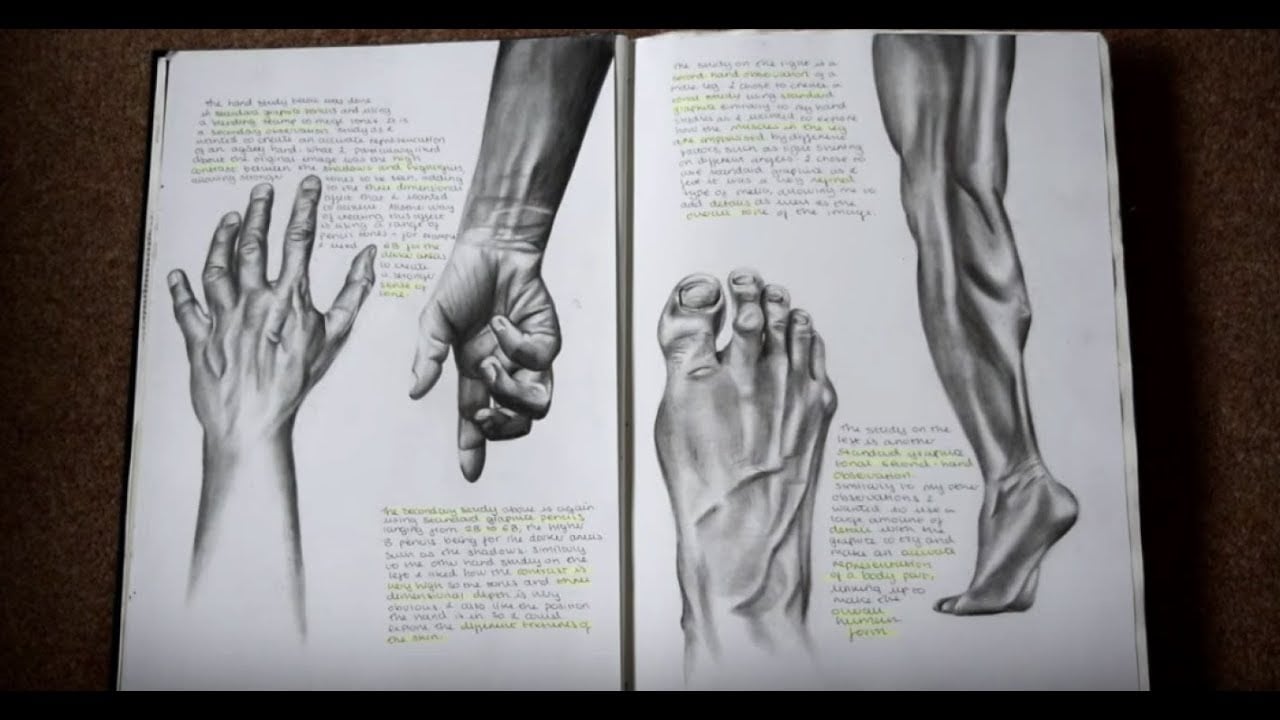 The hand study below was done
in standard graphite pencils and using
a blending stump to merge tones. It is
a secondary observation study as I
wanted to create an accurate representation
of an ageing hand. What I particularly liked
about the original image was the high
contrast between the shadows and highlights,
allowing stronger tones to be seen, adding
to the three dimensional
effect that I wanted
to achieve. Another way
of creating this effect
is using a range of
pencil tones - for example
I used 6B for the
darker areas
to create
a stronger
sense of
tone.
The secondary study above is again
using standard graphite pencils
ranging from 2B to 6B, the higher
B pencils being for the darker areas
such as the shadows. Similarly
to the other hand study on the
left I liked how the contrast is
very high so the tones and three
dimensional depth is very
obvious. I also like the position
the hand is in so I could
explore the different textures of
the skin.
The study on the right is a
second hand observation of a
male leg. I chose to create a
tonal study using standard
graphite similarly to my hand
studies as I wanted to explore
how the muscles in the leg
are emphasised by different
factors such as light shining
on different angles. I chose to
use standard graphite as I
felt it was a very refined
type of media, allowing me to
add details as well as the
overall tone of the image.
The study on the
left is another
standard graphite
tonal second-hand
observation.
Similarly to my other
observations I
wanted to use a
large amount of
detail with the
graphite to try and
make an accurate
representation
of a body part,
linking up to
make the
overall
human
form